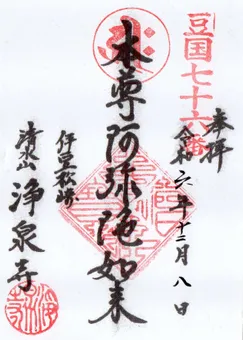 豆国七十六番
奉拝
令和六年十二月八日
本尊阿弥陀如来
伊豆松崎
清水山
浄泉寺